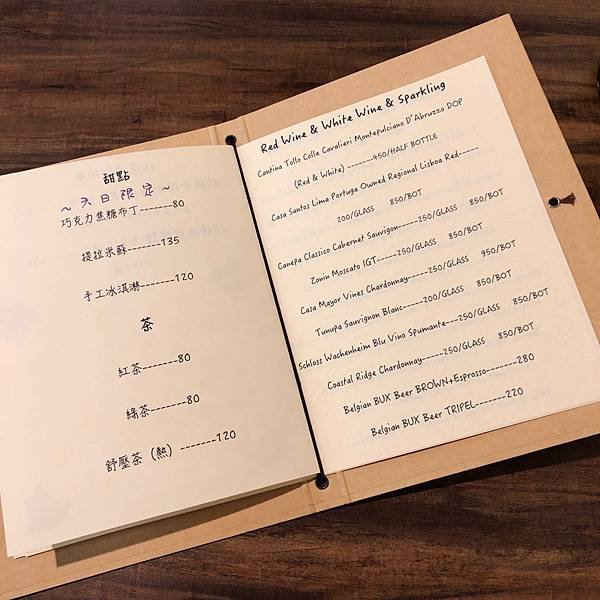 甜點
～六日限定～
巧克力焦糖布丁-------80
提拉米蘇-------135
手工冰淇淋-------120
茶
紅茶-------80
綠茶-------80
舒壓茶（熱）-------120
Red Wine & White Wine & Sparkling
Cantina Tollo Colle Cavalieri Montepulciano D'Abruzzo DOP
(Red & White) -------950/HALF BOTTLE
Casa Santos Lima Portuga Owned Regional Lisboa Red-----
200/GLASS 850/BOT
Canepa Classico Cabernet Sauvignon-----250/GLASS 850/BOT
Zonin Moscato IGT-----250/GLASS 850/BOT
Casa Mayor Vines Chardonnay-----250/GLASS 950/BOT
Tunupa Sauvignon Blanc-----200/GLASS 850/BOT
Schloss Wachenheim Blu Vino Spumante---250/GLASS 850/BOT
Coastal Ridge Chardonnay-----250/GLASS 850/BOT
Belgian BUX Beer BROWN+Espresso-------280
Belgian BUX Beer TRIPEL-------220